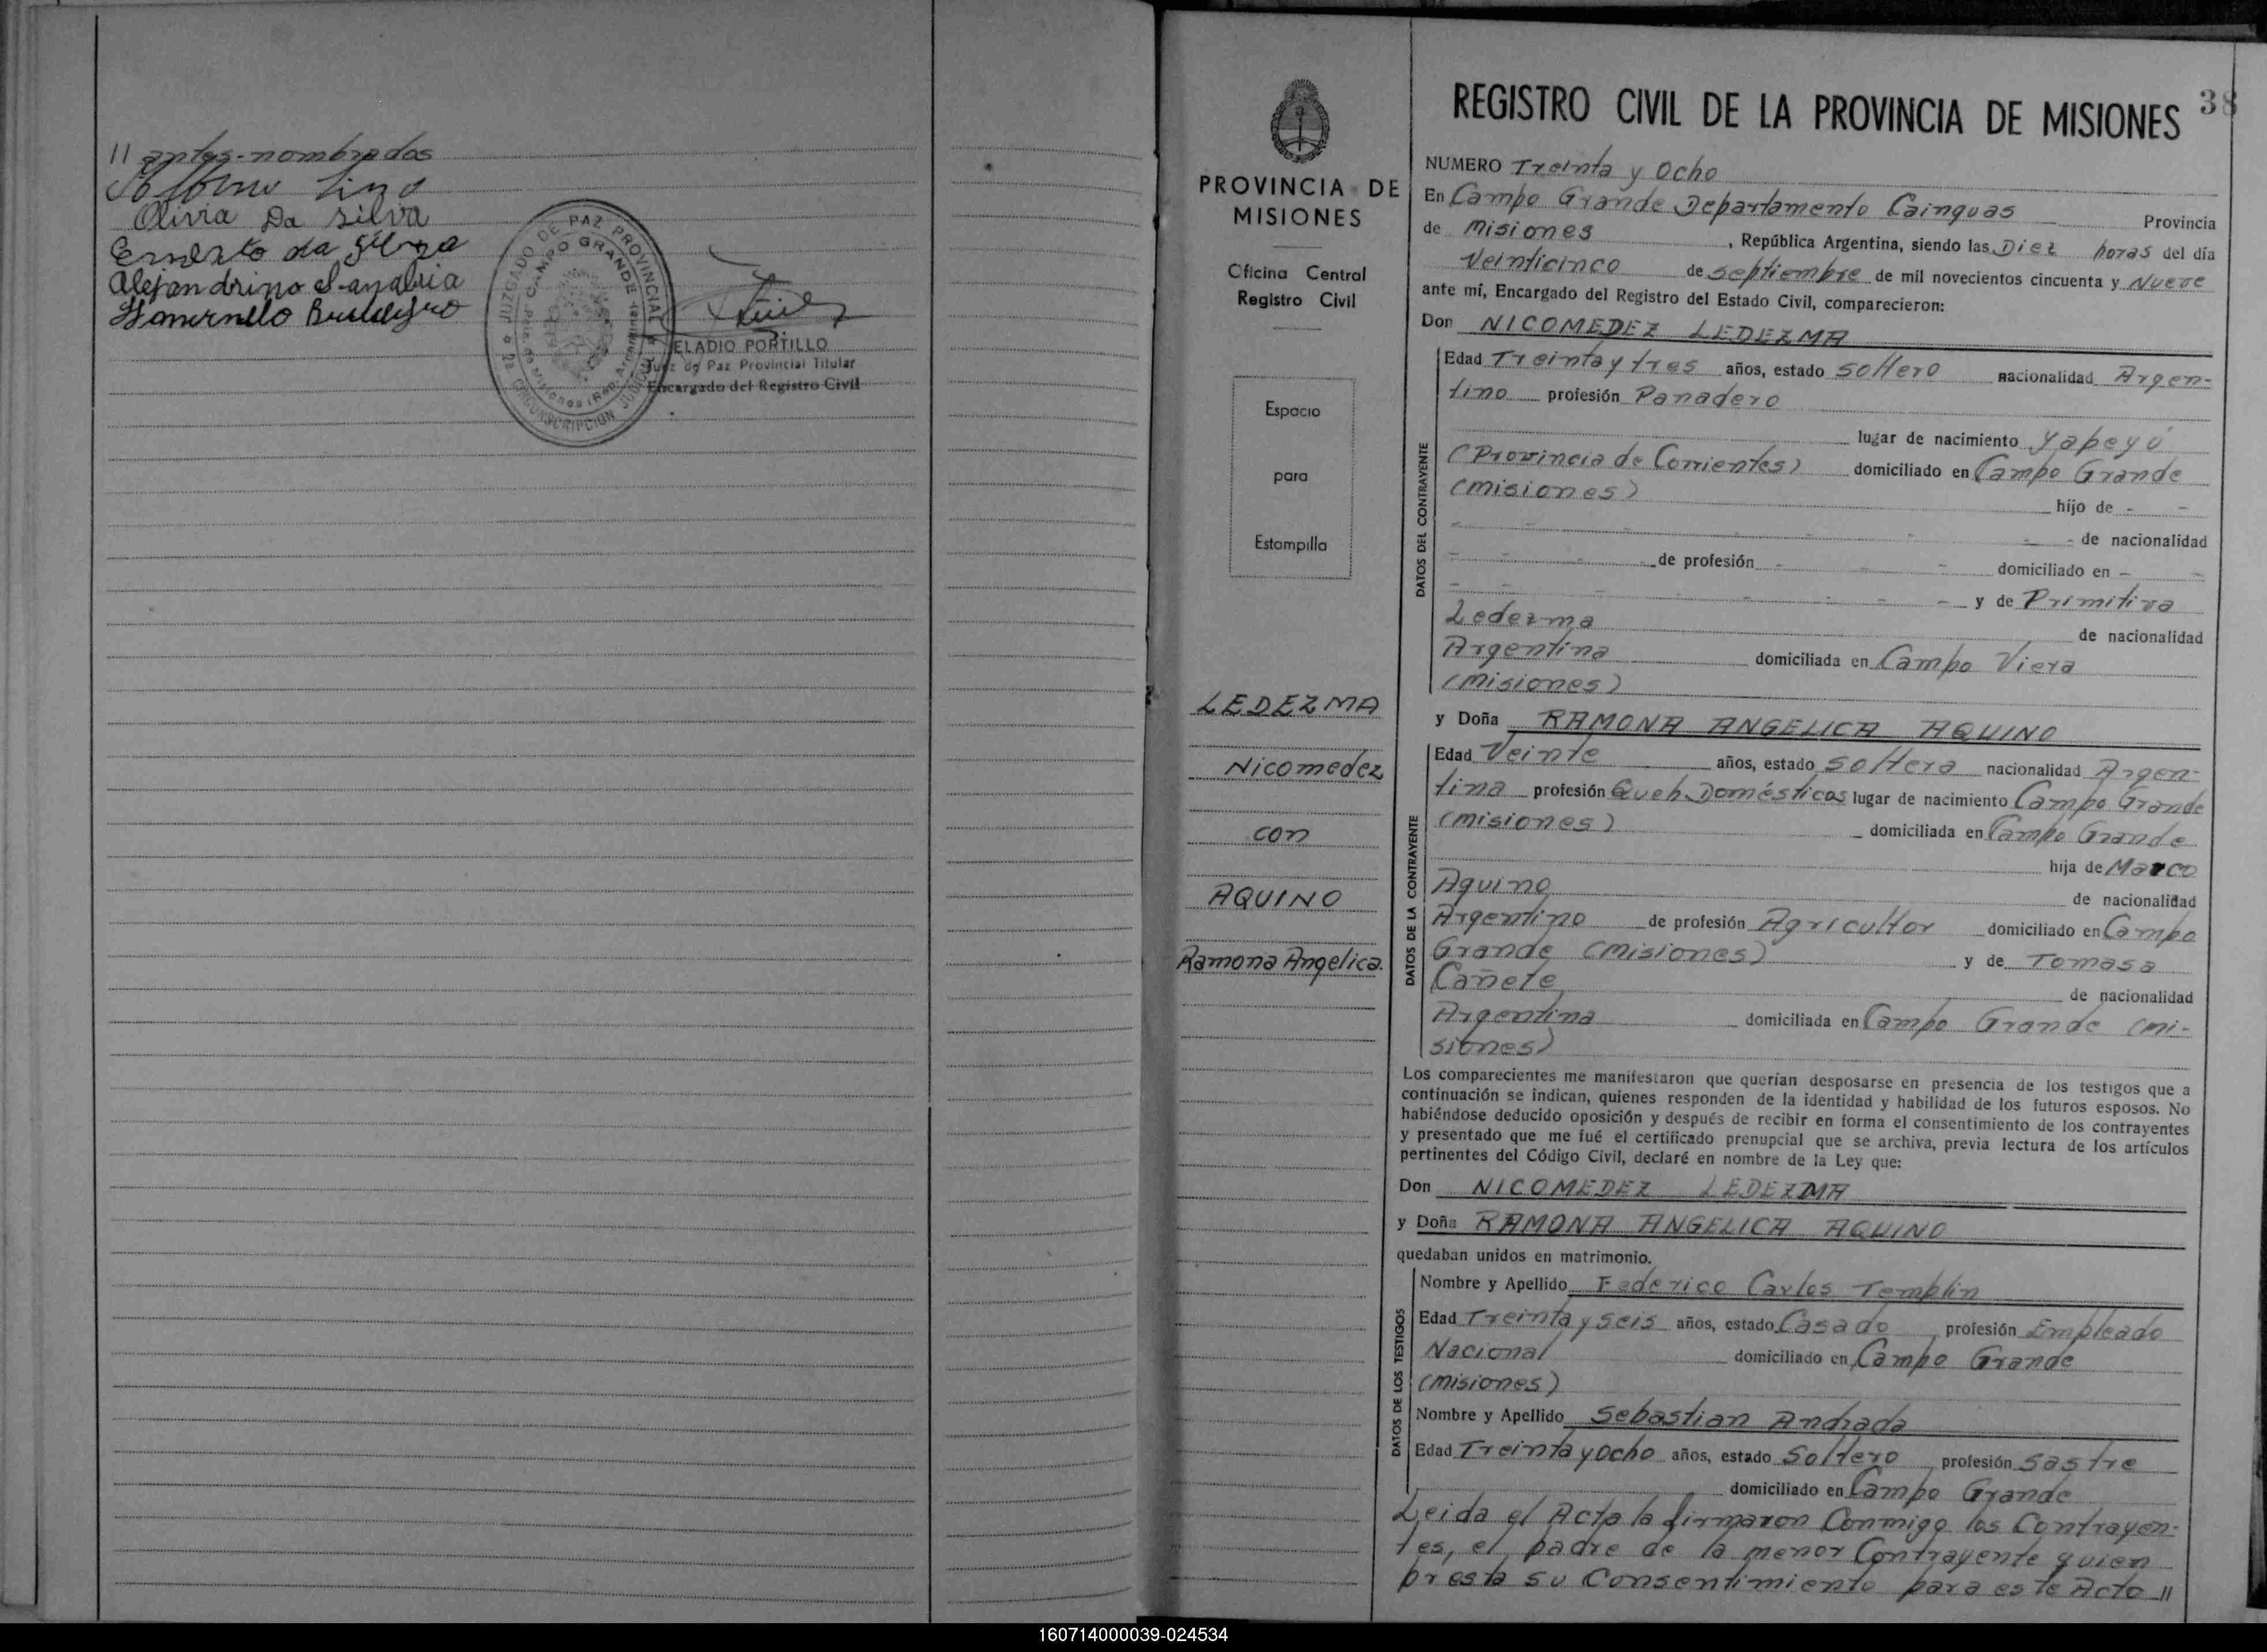 // antes-nombrados
Lino
Olivia Da Silva
Ernesto da Silva
Alejandrino Sanabria
JUZGADO DE PAZ PROVINCIAL
CAMPO GRANDE
2a CIRCUNSCRIPCION JUDICIAL
ELADIO PORTILLO
Juez de Paz Provincial Titular
Encargado del Registro Civil
PROVINCIA DE
MISIONES
Oficina Central
Registro Civil
Espacio
para
Estampilla
LEDEZMA
Nicomedez
con
AQUINO
Ramona Angelica.
38
REGISTRO CIVIL DE LA PROVINCIA DE MISIONES
NUMERO Treinta y Ocho
En Campo Grande Departamento Cainguas Provincia
de Misiones, República Argentina, siendo las Diez horas del día
Veinticinco de Septiembre de mil novecientos cincuenta y Nueve
ante mí, Encargado del Registro del Estado Civil, comparecieron:
Don NICOMEDEZ LEDEZMA
DATOS DEL CONTRAYENTE
Edad Treinta y tres años, estado soltero nacionalidad Argen-
tino profesión Panadero
lugar de nacimiento Yapeyú
(Provincia de Corrientes) domiciliado en Campo Grande
(Misiones)
hijo de - -
- - - - - de nacionalidad
- - - - de profesión - - domiciliado en - -
- - - - - - y de Primitiva
Ledezma
de nacionalidad
Argentina domiciliada en Campo Viera
(Misiones)
y Doña RAMONA ANGELICA AQUINO
DATOS DE LA CONTRAYENTE
Edad Veinte años, estado soltera nacionalidad Argen-
tina profesión Queh. Domésticos lugar de nacimiento Campo Grande
(Misiones) domiciliada en Campo Grande
hija de Marco
Aquino
de nacionalidad
Argentino de profesión Agricultor domiciliado en Campo
Grande (Misiones) y de Tomasa
Cañete
de nacionalidad
Argentina domiciliada en Campo Grande (Mi-
siones)
Los comparecientes me manifestaron que querían desposarse en presencia de los testigos que a
continuación se indican, quienes responden de la identidad y habilidad de los futuros esposos. No
habiéndose deducido oposición y después de recibir en forma el consentimiento de los contrayentes
y presentado que me fué el certificado prenupcial que se archiva, previa lectura de los artículos
pertinentes del Código Civil, declaré en nombre de la Ley que:
Don NICOMEDEZ LEDEZMA
y Doña RAMONA ANGELICA AQUINO
quedaban unidos en matrimonio.
DATOS DE LOS TESTIGOS
Nombre y Apellido Federico Carlos Templin
Edad Treinta y seis años, estado Casado profesión Empleado
Nacional domiciliado en Campo Grande
(Misiones)
Nombre y Apellido Sebastian Andrada
Edad Treinta y ocho años, estado Soltero profesión Sastre
domiciliado en Campo Grande
Leida el Acta la firmaron Conmigo los Contrayen-
tes, el padre de la menor Contrayente quien
presta su Consentimiento para este Acto //
160714000039-024534